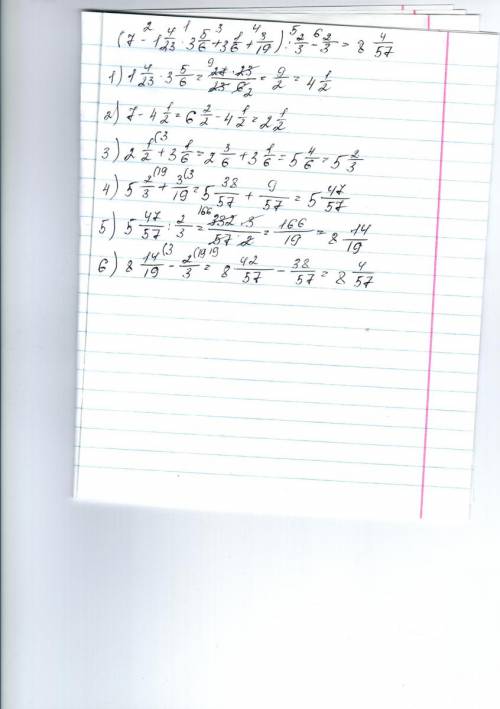 (7 - 1 4/23 · 3 5/6 + 3 1/6 + 3/19) : 2/3 - 2/3 = 8 4/57
2 1 3 4 5 6
1) 1 4/23 · 3 5/6 = 27 · 23 / 23 · 6 = 9/2 = 4 1/2
9 2
2) 7 - 4 1/2 = 6 2/2 - 4 1/2 = 2 1/2
3) 2 1/2 (3 + 3 1/6 = 2 3/6 + 3 1/6 = 5 4/6 = 5 2/3
4) 5 2/3 (19 + 3/19 (3 = 5 38/57 + 9/57 = 5 47/57
5) 5 47/57 : 2/3 = 332 · 3 / 57 · 2 = 166/19 = 8 14/19
166 19
6) 8 14/19 (3 - 2/3 (19 = 8 42/57 - 38/57 = 8 4/57